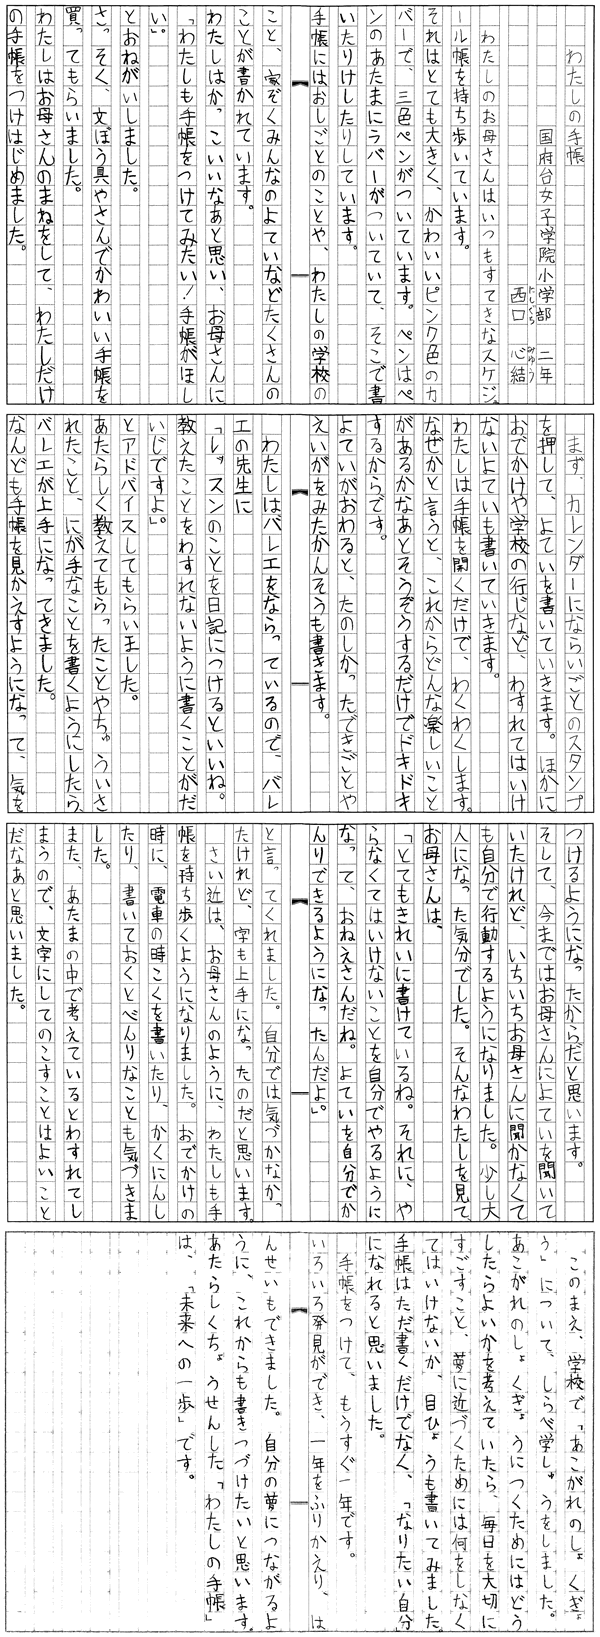 わたしの手帳
国府台女子学院小学部　二年
西口　心結
にしぐち　みゆう
わたしのお母さんはいつもすてきなスケジュ
ール帳を持ち歩いています。
それはとても大きく、かわいいピンク色のカ
バーで、三色ペンがついています。ペンはペ
ンのあたまにラバーがついていて、そこで書
いたりけしたりしています。
手帳にはおしごとのことや、わたしの学校の
こと、家ぞくみんなのよていなどたくさんの
ことが書かれています。
わたしはかっこいいなあと思い、お母さんに
「わたしも手帳をつけてみたい！手帳がほし
い」。
とおねがいしました。
さっそく、文ぼう具やさんでかわいい手帳を
買ってもらいました。
わたしはお母さんのまねをして、わたしだけ
の手帳をつけはじめました。
まず、カレンダーにならいごとのスタンプ
を押して、よていを書いていきます。ほかに
おでかけや学校の行じなど、わすれてはいけ
ないよていも書いていきます。
わたしは手帳を開くだけで、わくわくします。
なぜかと言うと、これからどんな楽しいこと
があるかなあとそうぞうするだけでドキドキ
するからです。
よていがおわると、たのしかったできごとや
えいがをみたかんそうも書きます。
わたしはバレエをならっているので、バレ
エの先生に
「レッスンのことを日記につけるといいね。
教えたことをわすれないように書くことがだ
いじですよ」。
とアドバイスしてもらいました。
あたらしく教えてもらったことやちゅういさ
れたこと、にが手なことを書くようにしたら、
バレエが上手になってきました。
なんども手帳を見かえすようになって、気を
つけるようになったからだと思います。
そして、今まではお母さんによていを聞いて
いたけれど、いちいちお母さんに聞かなくて
も自分で行動するようになりました。少し大
人になった気分でした。そんなわたしを見て、
お母さんは、
「とてもきれいに書けているね。それに、や
らなくてはいけないことを自分でやるように
なって、おねえさんだね。よていを自分でか
んりできるようになったんだよ」。
と言ってくれました。自分では気づかなかっ
たけれど、字も上手になったのだと思います。
さい近は、お母さんのように、わたしも手
帳を持ち歩くようになりました。おでかけの
時に、電車の時こくを書いたり、かくにんし
たり、書いておくとべんりなことも気づきま
した。
また、あたまの中で考えているとわすれてし
まうので、文字にしてのこすことはよいこと
だなあと思いました。
このまえ、学校で「あこがれのしょくぎょ
う」について、しらべ学しゅうをしました。
あこがれのしょくぎょうにつくためにはどう
したらよいかを考えていたら、毎日を大切に
すごすこと、夢に近づくためには何をしなく
てはいけないか、目ひょうも書いてみました。
手帳はただ書くだけでなく、「なりたい自分」
になれると思いました。
手帳をつけて、もうすぐ一年です。
いろいろ発見ができ、一年をふりかえり、は
んせいもできました。自分の夢につながるよ
うに、これからも書きつづけたいと思います。
あたらしくちょうせんした「わたしの手帳」
は、「未来への一歩」です。